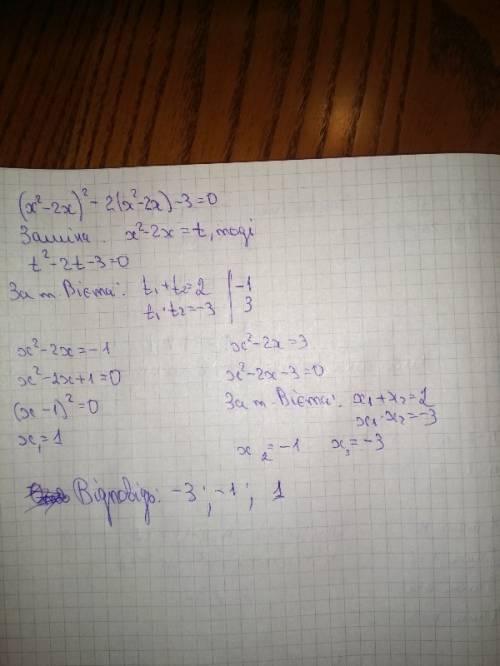 (x²-2x)²-2(x²-2x)-3=0
Заміна. x²-2x=t, тоді
t²-2t-3=0
За т Вієта: t₁+t₂=2 | -1
t₁·t₂=-3 | 3
x²-2x=-1
x²-2x+1=0
(x-1)²=0
x₁=1
x²-2x=3
x²-2x-3=0
За т Вієта: x₁+x₂=2
x₁·x₂=-3
x₂=-1 x₃=-3
Відповідь: -3; -1; 1